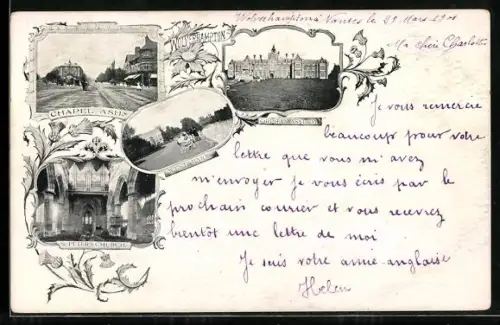 WOLVERHAMPTON
CHAPEL ASH
ST PETERS CHURCH
Wolverhampton le 29 Mars
Ma chère Charlotte
Je vous remercie
beaucoup pour votre
lettre que vous m'avez
m'envoyer je vous écris par le
prochain courier et vous recevrez
bientôt une lettre de moi
Je suis votre amie anglaise
Helen